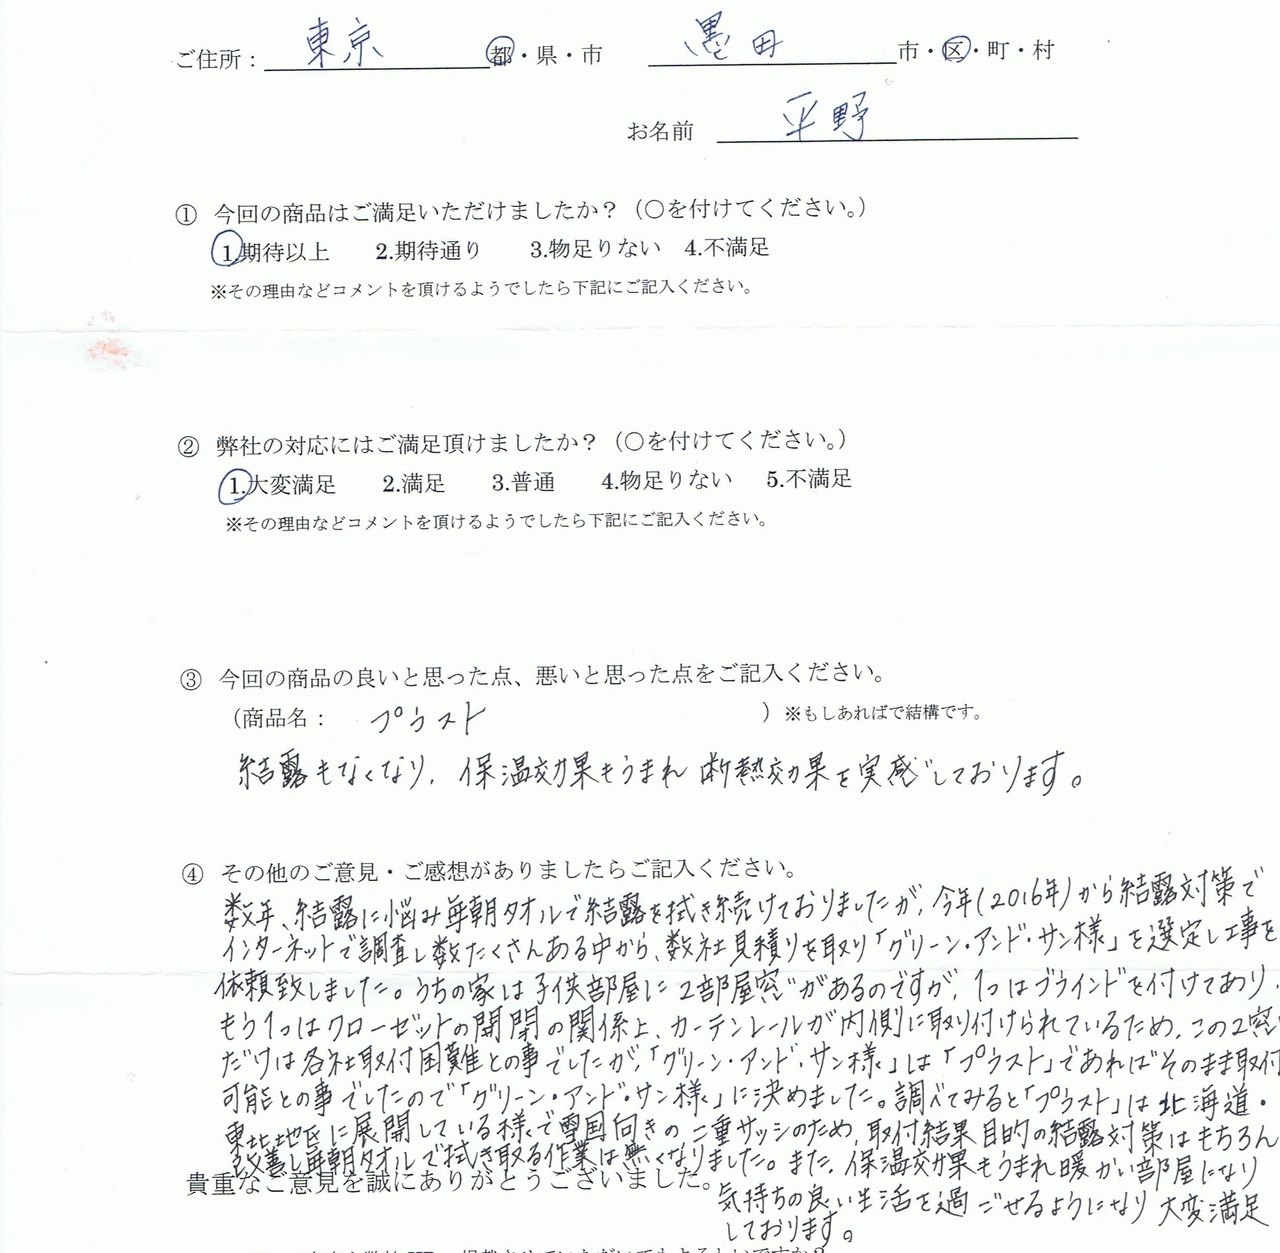 ご住所： 東京 都・県・市 墨田 市・区・町・村
お名前 平野
① 今回の商品はご満足いただけましたか？（○を付けてください。）
1.期待以上 2.期待通り 3.物足りない 4.不満足
※その理由などコメントを頂けるようでしたら下記にご記入ください。
② 弊社の対応にはご満足頂けましたか？（○を付けてください。）
1.大変満足 2.満足 3.普通 4.物足りない 5.不満足
※その理由などコメントを頂けるようでしたら下記にご記入ください。
③ 今回の商品の良いと思った点、悪いと思った点をご記入ください。
（商品名： プラスト ）※もしあればで結構です。
結露もなくなり、保温効果もうまれ断熱効果を実感しております。
④ その他のご意見・ご感想がありましたらご記入ください。
数年、結露に悩み毎朝タオルで結露を拭き続けておりましたが、今年(2016年)から結露対策で
インターネットで調査し数たくさんある中から、数社見積りを取り「グリーン・アンド・サン様」を選定し工事を
依頼致しました。うちの家は子供部屋に2部屋窓があるのですが、1つはブラインドを付けてあり、
もう1つはクローゼットの開閉の関係上、カーテンレールが内側に取り付けられているため、この2窓
だけは各社取付困難との事でしたが、「グリーン・アンド・サン様」は「プラスト」であればそのまま取付
可能との事でしたので「グリーン・アンド・サン様」に決めました。調べてみると「プラスト」は北海道・
東北地区に展開している様で雪国向きの二重サッシのため、取付結果目的の結露対策はもちろん
改善し毎朝タオルで拭き取る作業は無くなりました。また、保温効果もうまれ暖かい部屋になり
貴重なご意見を誠にありがとうございました。
気持ちの良い生活を過ごせるようになり大変満足
しております。